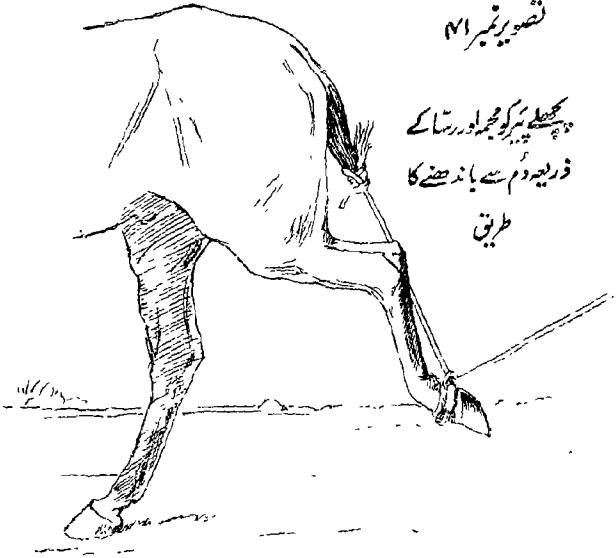 تصویر نمبر ۴۱
پچھلے پیر کو مچمہ اور رسّا کے
ذریعہ دُم سے باندھنے کا
طریق